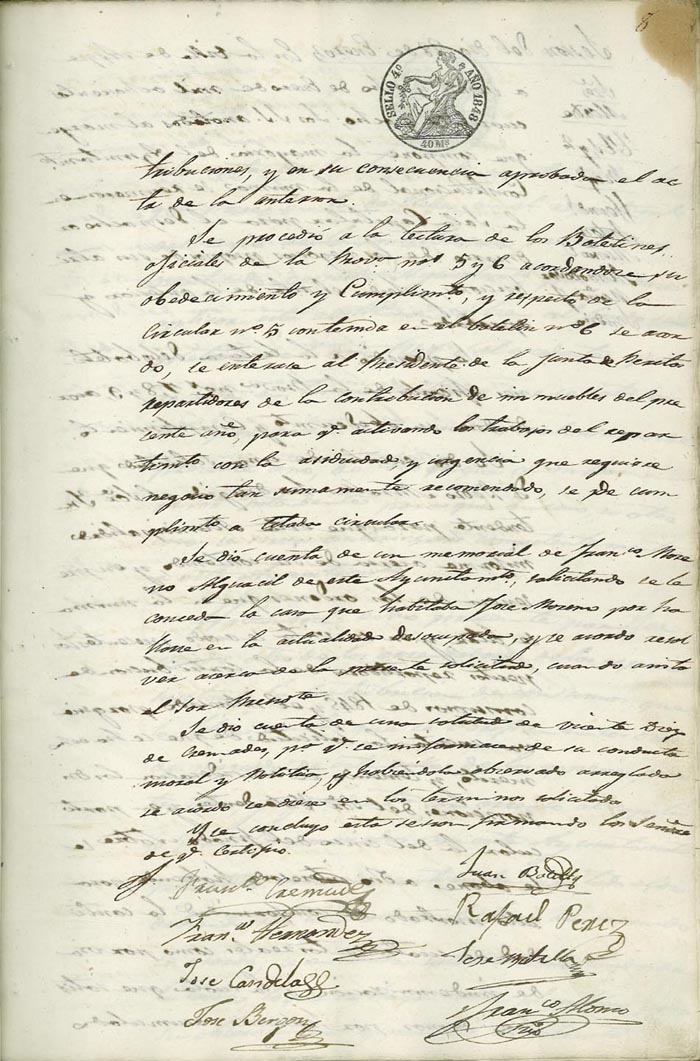 8
SELLO 4º AÑO 1848
40 Ms
tribuciones, y en su consecuencia aprobada el ac
ta de la anterior.
Se procedió á la lectura de los Boletines
oficiales de la Prova nos 5 y 6 acordandose su
obedecimiento y Cumplimto, y respecto de la
Circular nº 5 contenida en el boletin nº 6 se acor
do, se interese al Presidente de la junta de Peritos
repartidores de la contribucion de inmuebles del pre
cente año, para q. activando los trabajos del repar
timto con la asiduidad y urgencia que requiere
negocio tan sumamente recomendado, se de cum
plimto a citada circular.
Se dió cuenta de un memorial de Franco More
no Alguacil de este Ayuntamto, solicitando se le
conceda la casa que habitaba Jose Moreno por ha
llarse en la actualidad desocupada, y se acordo resol
ver acerca de la presete solicitud, cuando asista
el Sor
Se dio cuenta de una solicitud de Vicente Diez
de Cremades, pa q. se informase de su conducta
moral y Politica, y habiendola observado arreglada
se acordo se diese en los terminos solicitada
Y se concluyo esta sesion firmando los Señores
de q. Certifico.
Franco Cremades
Juan
Franco Hernandez
Rafael Perez
Jose Candela
Jose
Jose
Franco Alonso
Srio